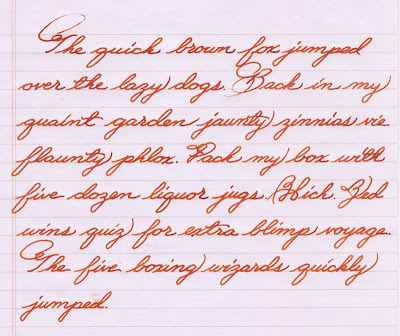 The quick brown fox jumped
over the lazy dogs. Back in my
quaint garden jaunty zinnias vie
flaunty phlox. Pack my box with
five dozen liquor jugs. Hick. Zed
wins quiz for extra blimp voyage.
The five boxing wizards quickly
jumped.